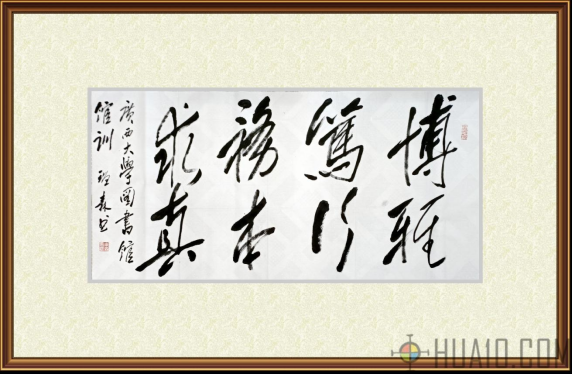 博雅
篤行
務本
求真
廣西大學圖書館
館訓
HUA10.COM